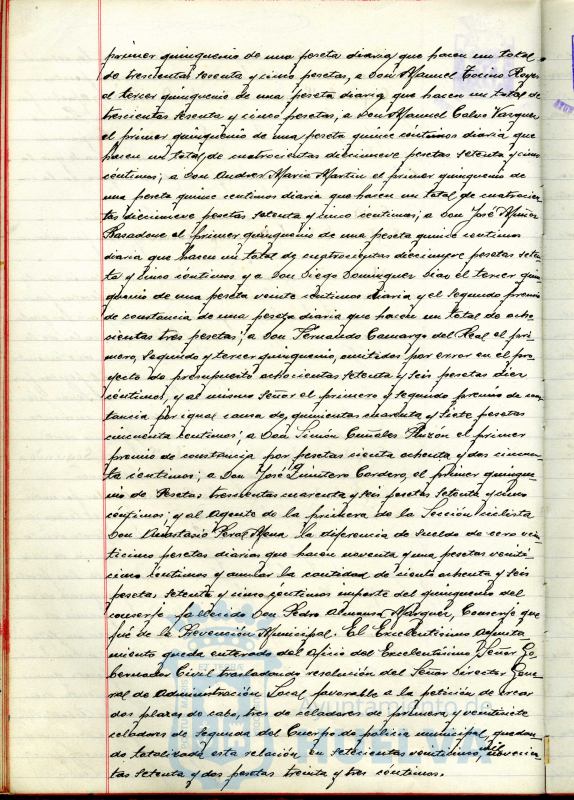 primer quinquenio de una peseta diaria que hacen un total
de trescientas sesenta y cinco pesetas, a Don Manuel Tocino Reyes
el tercer quinquenio de una peseta diaria que hacen un total de
trescientas sesenta y cinco pesetas, a Don Manuel Calvo Vazquez
el primer quinquenio de una peseta quince centimos diaria que
hacen un total de cuatrocientas diecinueve pesetas setenta y cinco
centimos; a Don Andres Maria Martin el primer quinquenio de
una peseta quince centimos diaria que hacen un total de cuatrocien-
tas diecinueve pesetas setenta y cinco centimos; a Don José Muñoz
el primer quinquenio de una peseta quince centimos
diaria que hacen un total de cuatrocientas diecinueve pesetas seten-
ta y cinco centimos y a Don Diego Dominguez Dias el tercer quin-
quenio de una peseta veinte centimos diaria y el segundo premio
de constancia de una peseta diaria que hacen un total de ocho-
cientas tres pesetas; a Don Fernando Camargo del Real el pri-
mero, segundo y tercer quinquenio, omitidos por error en el pro-
yecto de presupuesto ochocientas setenta y seis pesetas diez
centimos, y al mismo Señor el primero y segundo premio de cons-
tancia por igual causa de quinientas cuarenta y siete pesetas
cincuenta centimos; a Don Simón Pinzón el primer
premio de constancia por pesetas ciento ochenta y dos cincuen-
ta centimos; a Don José Quintero Cordero, el primer quinque-
nio de Pesetas trescientas cuarenta y seis pesetas setenta y cinco
centimos; y al Agente de la primera de la Sección ciclista
Don Anastasio Peral Mena la diferencia de sueldo de cero vein-
ticinco pesetas diarias que hacen noventa y una pesetas venti-
cinco centimos y anular la cantidad de ciento ochenta y seis
pesetas setenta y cinco centimos importe del quinquenio del
conserje fallecido Don Pedro Almansa Marquez, Conserje que
fué de la Prevención Municipal. El Excelentisimo Ayunta-
miento queda enterado del Oficio del Excelentisimo Señor Go-
bernador Civil trasladando resolución del Señor Director Gene-
ral de Administración Local favorable a la petición de crear
dos plazas de cabo, tres de celadores de primera y veintisiete
celadores de segunda del Cuerpo de policia municipal, quedan-
do totalizada esta relación en setecientas veinticinco mil novecien-
tas setenta y dos pesetas treinta y tres centimos.
Ayuntamiento de